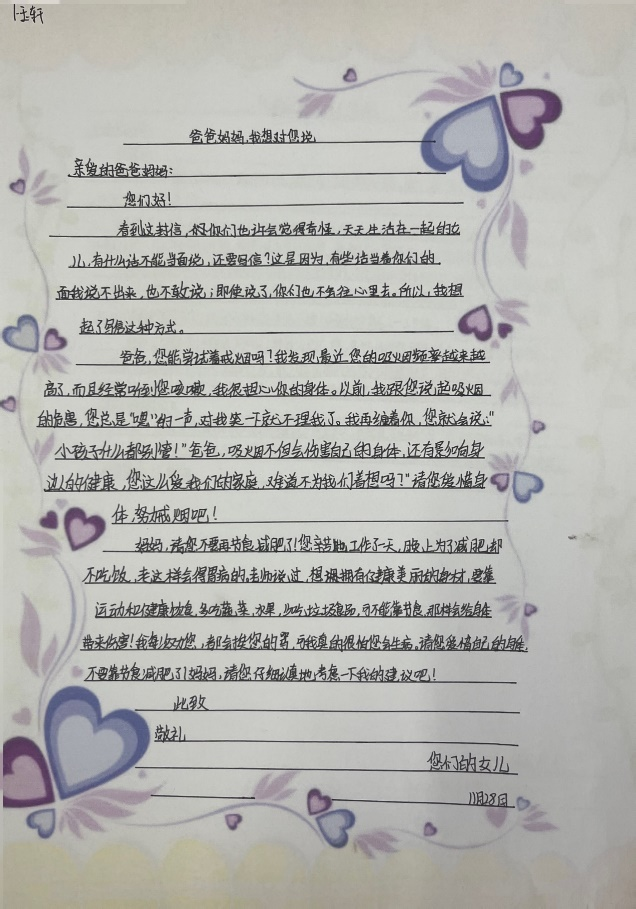 玉轩
爸爸妈妈,我想对您说
亲爱的爸爸妈妈:
您们好!
看到这封信,你们也许会觉得奇怪,天天生活在一起的女
儿,有什么话不能当面说,还要写信?这是因为,有些话当着你们的
面我说不出来,也不敢说;即使说了,你们也不会往心里去。所以,我想
起了写信这种方式。
爸爸,您能尝试着戒烟吗?我发现最近您的吸烟频率越来越
高了,而且经常听到您咳嗽,我很担心你的身体。以前,我跟您说起吸烟
的危害,您总是"嗯"的一声,对我笑一下就不理我了。我再缠着你,您就会说:"
小孩子什么都别管!"爸爸,吸烟不但会伤害自己的身体,还有是如向身
边人的健康,您这么爱我们的家庭,难道不为我们着想吗?"请您爱惜身
体,努力戒烟吧!
妈妈,请您不要再节食减肥了!您辛苦地工作了一天,晚上为了减肥却
不吃饭,老这样会得胃病的。老师说过,想拥有健康美丽的身材,要靠
运动和健康饮食,多吃蔬菜、水果,少吃垃圾食品,可不能靠节食,那样会给身体
带来伤害!我每次劝您,都会挨您的骂,可我真的很怕您会生病。请您爱惜自己的身体,
不要靠节食减肥了!妈妈,请您仔细认真地考虑一下我的建议吧!
此致
敬礼
您们的女儿
11月28日